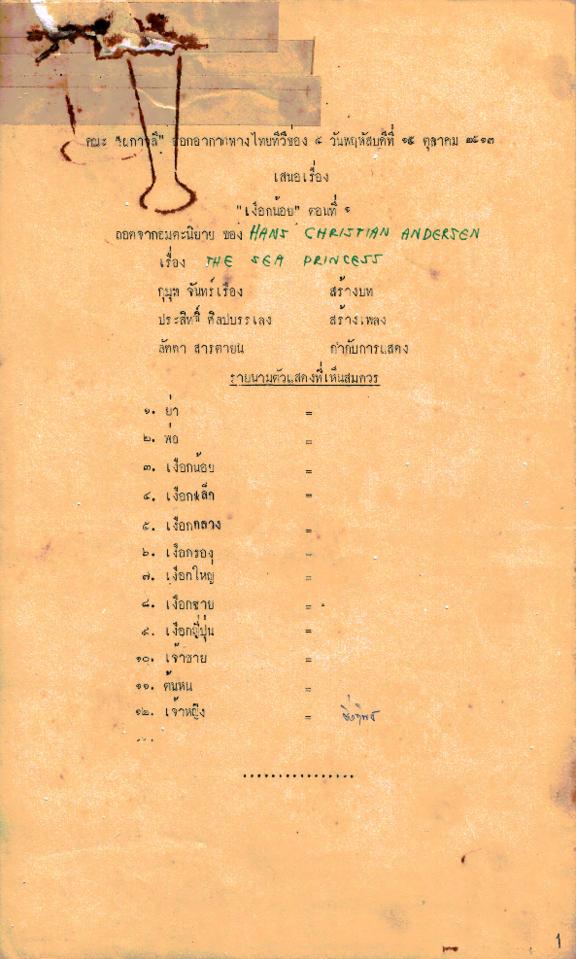 คณะ ออกอากาศทางไทยทีวีช่อง ๔ วันพฤหัสบดีที่ ๑๕ ตุลาคม ๒๕๑๓
เสนอเรื่อง
"เงือกน้อย" ตอนที่ ๑
ถอดจากอมตะนิยาย ของ HANS CHRISTIAN ANDERSEN
เรื่อง THE SEA PRINCESS
กุมุท จันทร์เรือง สร้างบท
ประสิทธิ์ ศิลปบรรเลง สร้างเพลง
ลัดดา สารตายน กำกับการแสดง
รายนามตัวแสดงที่เห็นสมควร
๑. ย่า =
๒. พ่อ =
๓. เงือกน้อย =
๔. เงือกเล็ก =
๕. เงือกกลาง =
๖. เงือกรอง =
๗. เงือกใหญ่ =
๘. เงือกชาย =
๙. เงือกญี่ปุ่น =
๑๐. เจ้าชาย =
๑๑. ต้นหน =
๑๒. เจ้าหญิง =
...
................
1